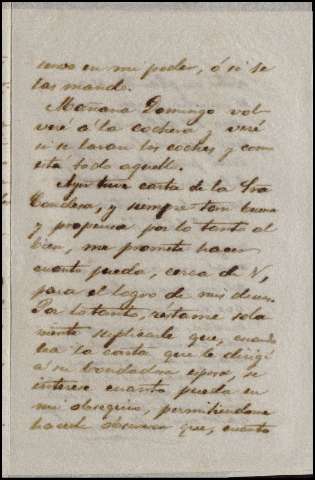 servo en mi poder, ó si se
las mando.
Mañana Domingo vol
veré á la cochera y veré
si se lavan los coches y como
está todo aquello.
Ayer tuve carta de la Sra
Condesa, y siempre tan buena
y propensa por lo tanto al
bien, me promete hacer
cuanto pueda, cerca de V,
para el logro de mis deseos.
Por lo tanto, restame sola
mente suplicarle que, cuando
lea la carta que le dirigí
a su bondadosa esposa, se
interese cuanto pueda en
mi obsequio, permitiendome
hacerle observar que, cuanto